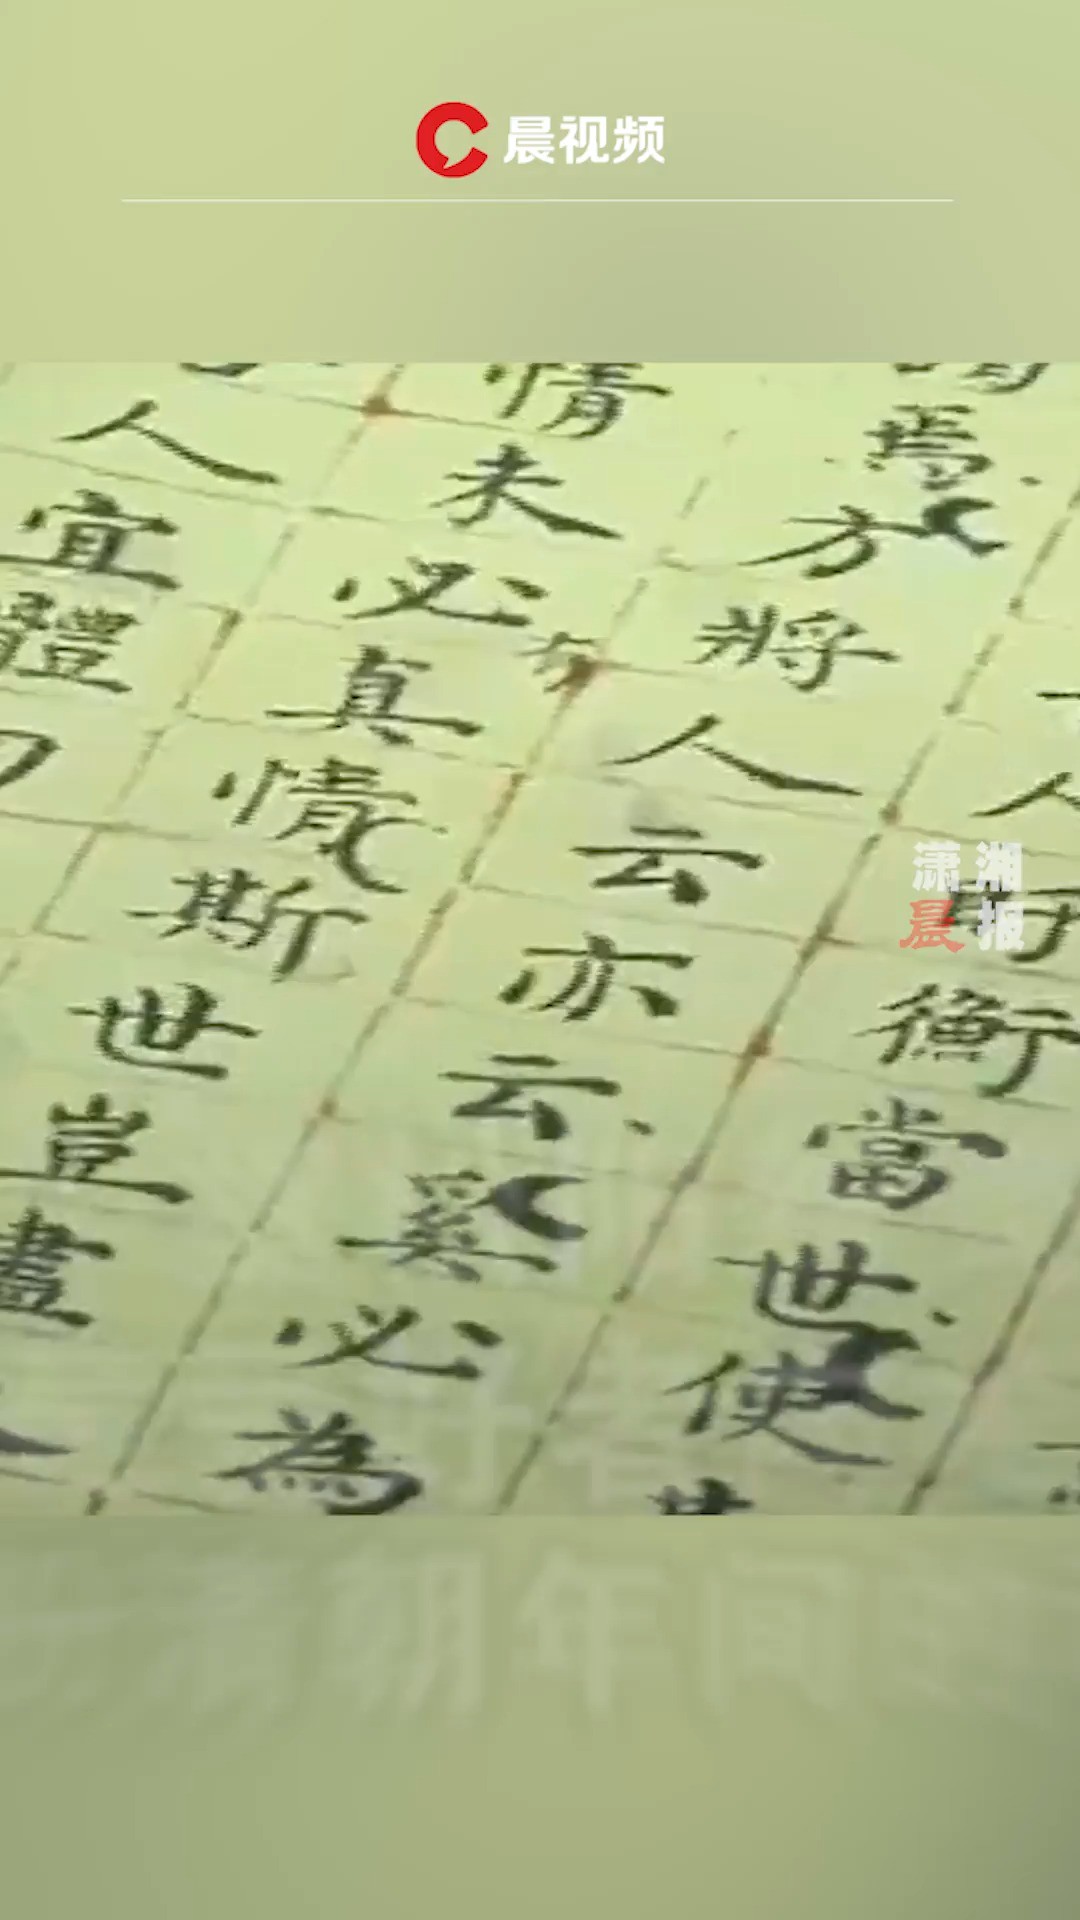 晨视频
焉方將人云亦云奚必為
情未必真情斯世豈盡
人宜體
衡當世使世
潇湘晨报
清朝年间